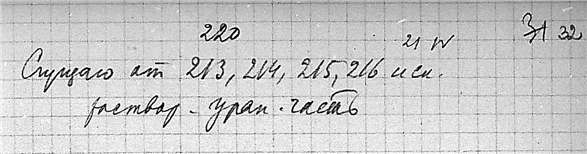 220 21 IV 31 32
Спущаю от 213, 214, 215, 216 иск.
раствор - уран. часть